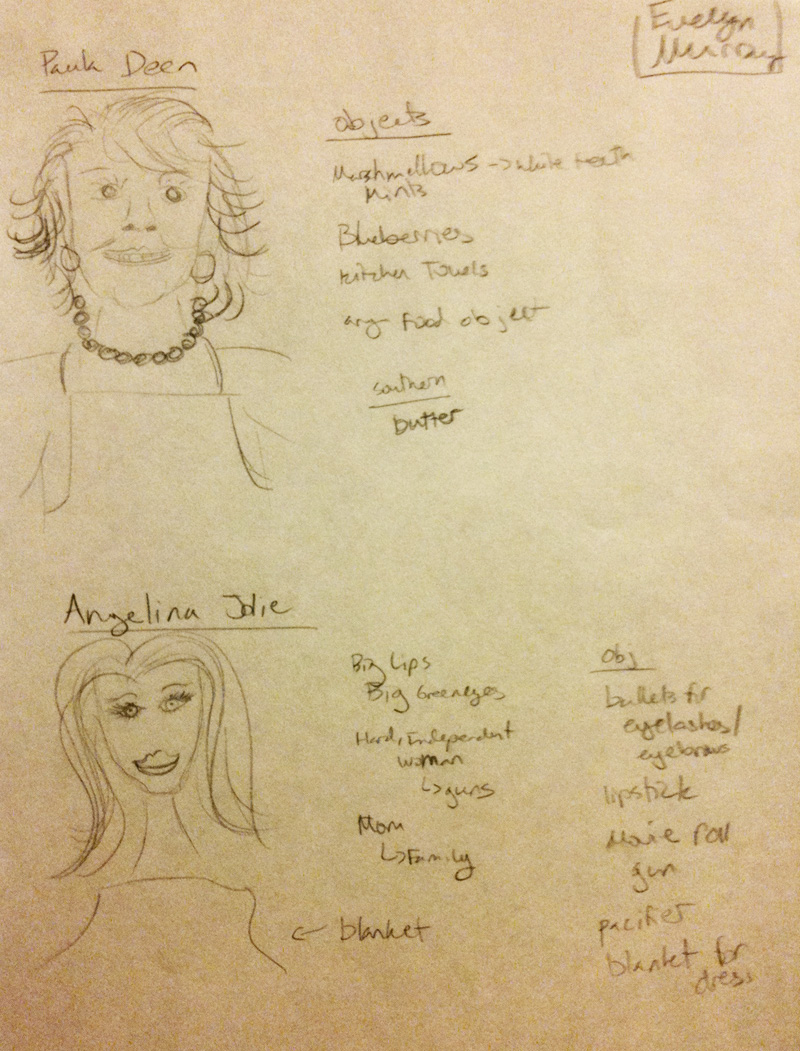 Evelyn
Murray
Paula Deen
objects
Marshmallows -> white teeth
Mints
Blueberries
Kitchen Towels
any food object
southern
butter
Angelina Jolie
Big Lips
Big Green eyes
Hard, Independent
woman
↳guns
Mom
↳Family
← blanket
Obj
bullets for
eyelashes/
eyebrows
lipstick
Movie roll
gun
pacifier
blanket for
dress